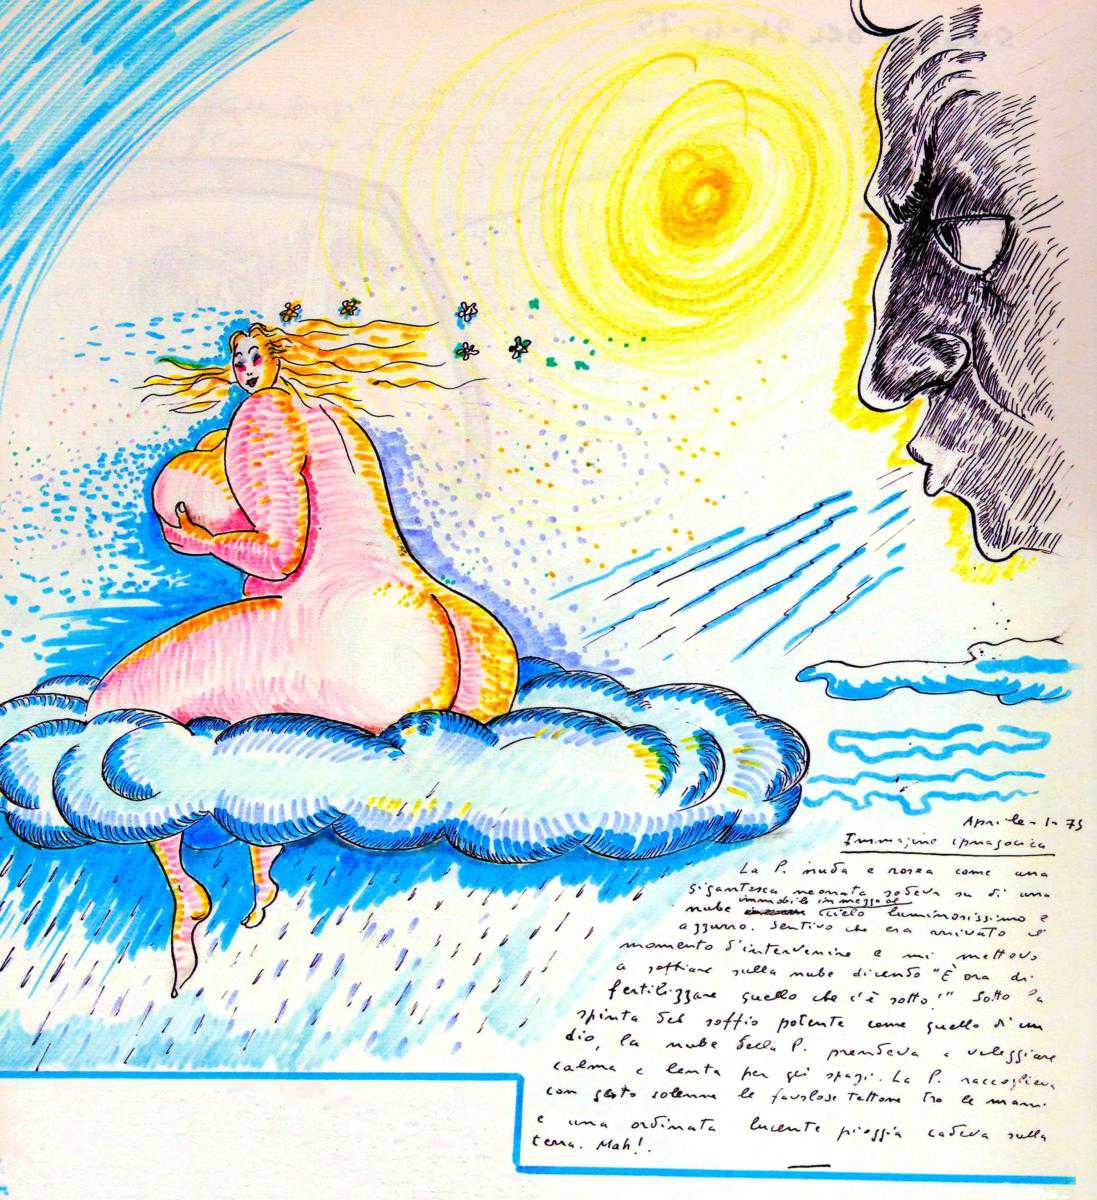 Aprile - 1 - 75
Immagine ipnagogica
La P. nuda e rosea come una
gigantesca neonata sedeva su di una
immobile in mezzo al
nube cielo luminosissimo e
azzurro. Sentivo che era arrivato il
momento d'intervenire e mi mettevo
a soffiare sulla nube dicendo "È ora di
fertilizzare quello che c'è sotto!" Sotto la
spinta del soffio potente come quello di un
dio, la nube della P. prendeva a veleggiare
calma e lenta per gli spazi. La P. raccoglieva
con gesto solenne le favolose tettone tra le mani
e una ordinata lucente pioggia cadeva sulla
terra. Mah!.